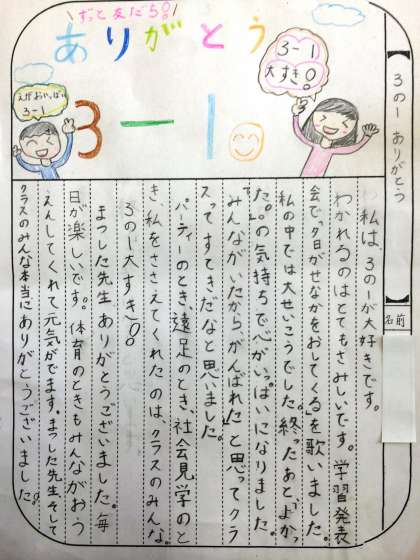 ずっと友だち!
ありがとう
3-1
大すき!
えがおいっぱい
3-1
3-1
【3の一 ありがとう】
名前
私は、3の一が大好きです。
わかれるのはとてもさみしいです。学習発表
会で「夕日がせなかをおしてくる」を歌いました。
私の中では大せいこうでした。終ったあと、「よかっ
た。」の気持ちで心がいっぱいになりました。
みんながいたから、がんばれた」と思ってクラ
スってすてきだなと思いました。
パーティーのとき、遠足のとき、社会見学のと
き、私をささえてくれたのはクラスのみんな。
3の一大すき!
まつした先生ありがとうございました。毎
日が楽しいです。体育のときもみんながおう
えんしてくれて元気がでます。まつした先生そして
クラスのみんな本当にありがとうございました。